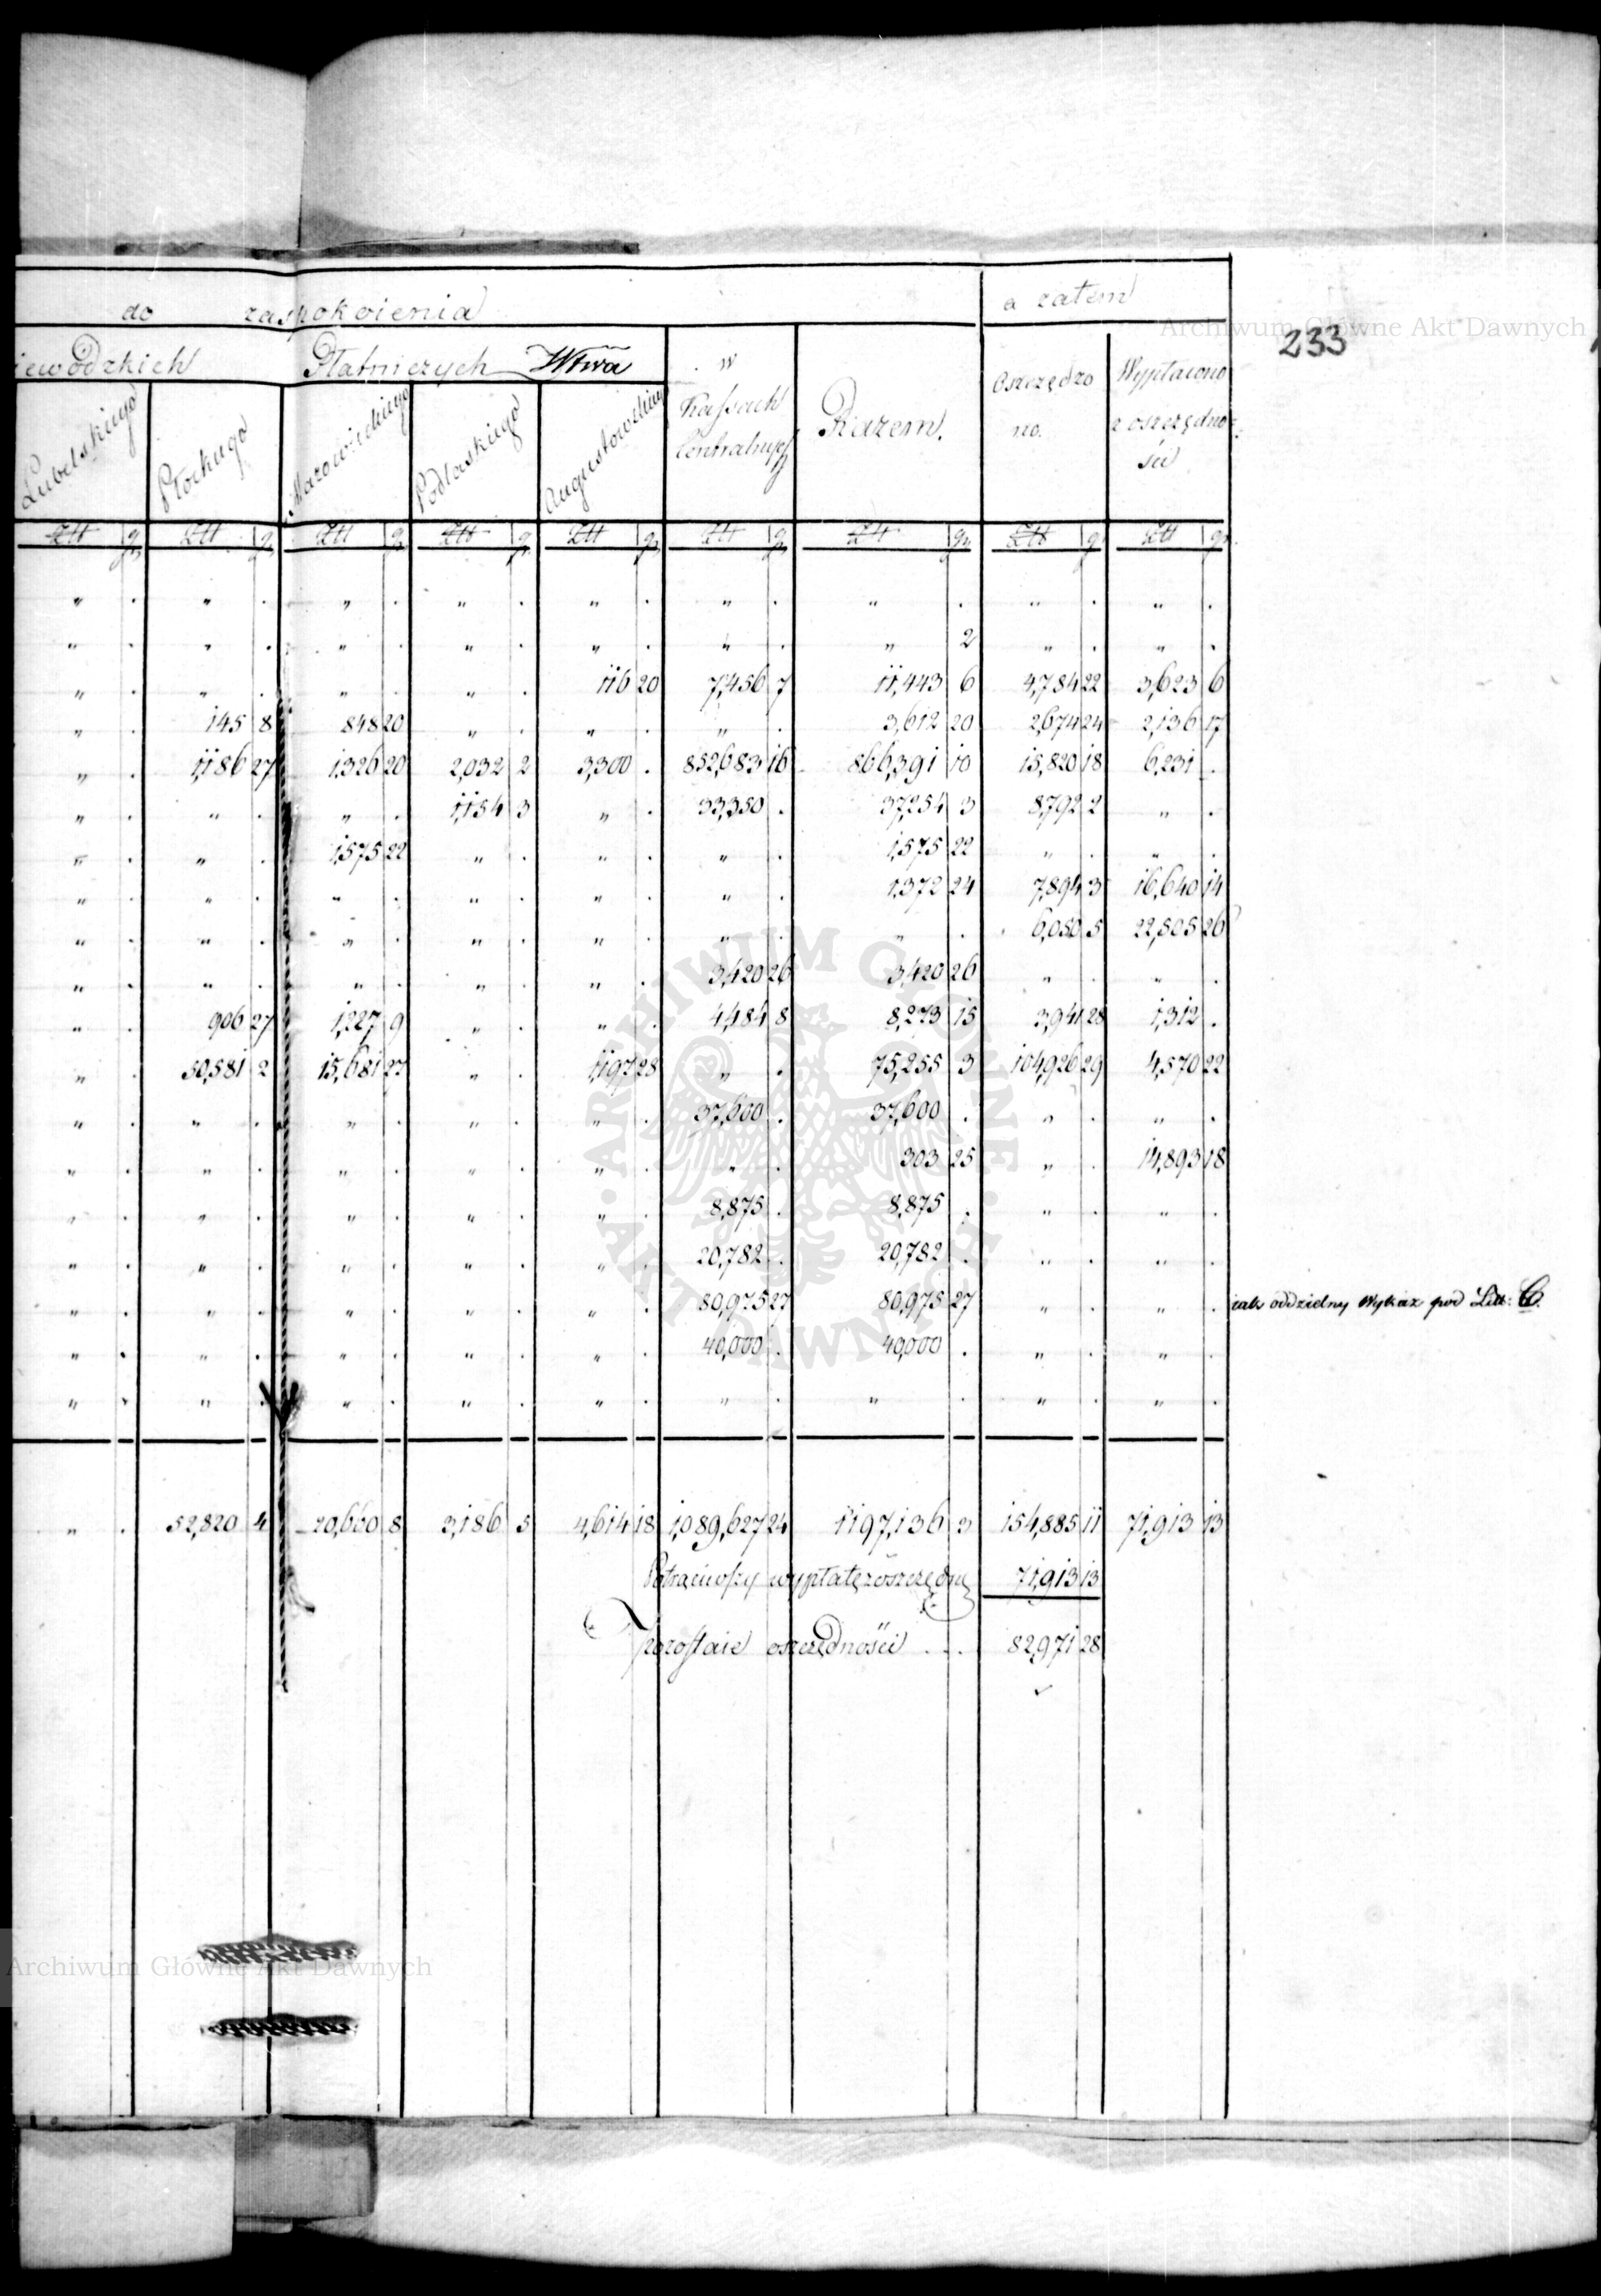 do zaspokoienia a zatem
Archiwum Główne Akt Dawnych
233
iewódzkich Płatniczych Wtwa w Kassach Centralnych Razem. Oszczędzono. Wypłacono z oszczędności
Lubelskiego Płockiego Mazowieckiego Podlaskiego Augustowskiego
Złł gr Złł gr Złł gr Złł gr Złł gr Złł gr Złł gr Złł gr Złł gr
" . " . " . " . " . " . " . " . " .
" . " . " . " . " . " . " 2 " . " .
" . " . " . " . 116 20 7,456 7 11,443 6 4,784 22 3,623 6
" . 145 8 848 20 " . " . " . 3,612 20 2,674 24 2,136 17
" . 1,186 27 1,326 20 2,032 2 3,300 . 852,683 16 866,391 10 15,820 18 6,231 .
" . " . " . 1,154 3 " . 33,350 . 37,254 3 8,792 2 " .
" . " . 1,575 22 " . " . " . 1,575 22 " . " .
" . " . " . " . " . " . 1,372 24 7,894 3 16,640 14
" . " . " . " . " . " . " . 6,050 5 22,505 26
" . " . " . " . " . 3,420 26 3,420 26 " . " .
" . 906 27 1,227 9 " . " . 4,484 8 8,273 15 3,941 28 1,312 .
" . 50,581 2 15,681 27 " . 1,197 28 " . 75,255 3 104,926 29 4,570 22
" . " . " . " . " . 37,600 . 37,600 . " . " .
" . " . " . " . " . " . 303 25 " . 14,893 18
" . " . " . " . " . 8,875 . 8,875 . " . " .
" . " . " . " . " . 20,782 . 20,782 . " . " .
" . " . " . " . " . 80,975 27 80,975 27 " . " . iak oddzielny Wykaz pod Litt: C.
" . " . " . " . " . 40,000 . 40,000 . " . " .
" . " . " . " . " . " . " . " . " .
" . 52,820 4 20,660 8 3,186 5 4,614 18 1,089,627 24 1197,136 3 154,885 11 71,913 13
Potrąciwszy wypłatę z oszczędn 71,913 13
Pozostaie oszczędności . . . 82,971 28
ARCHIWUM GŁÓWNE · AKT DAWNYCH ·
Archiwum Główne Akt Dawnych